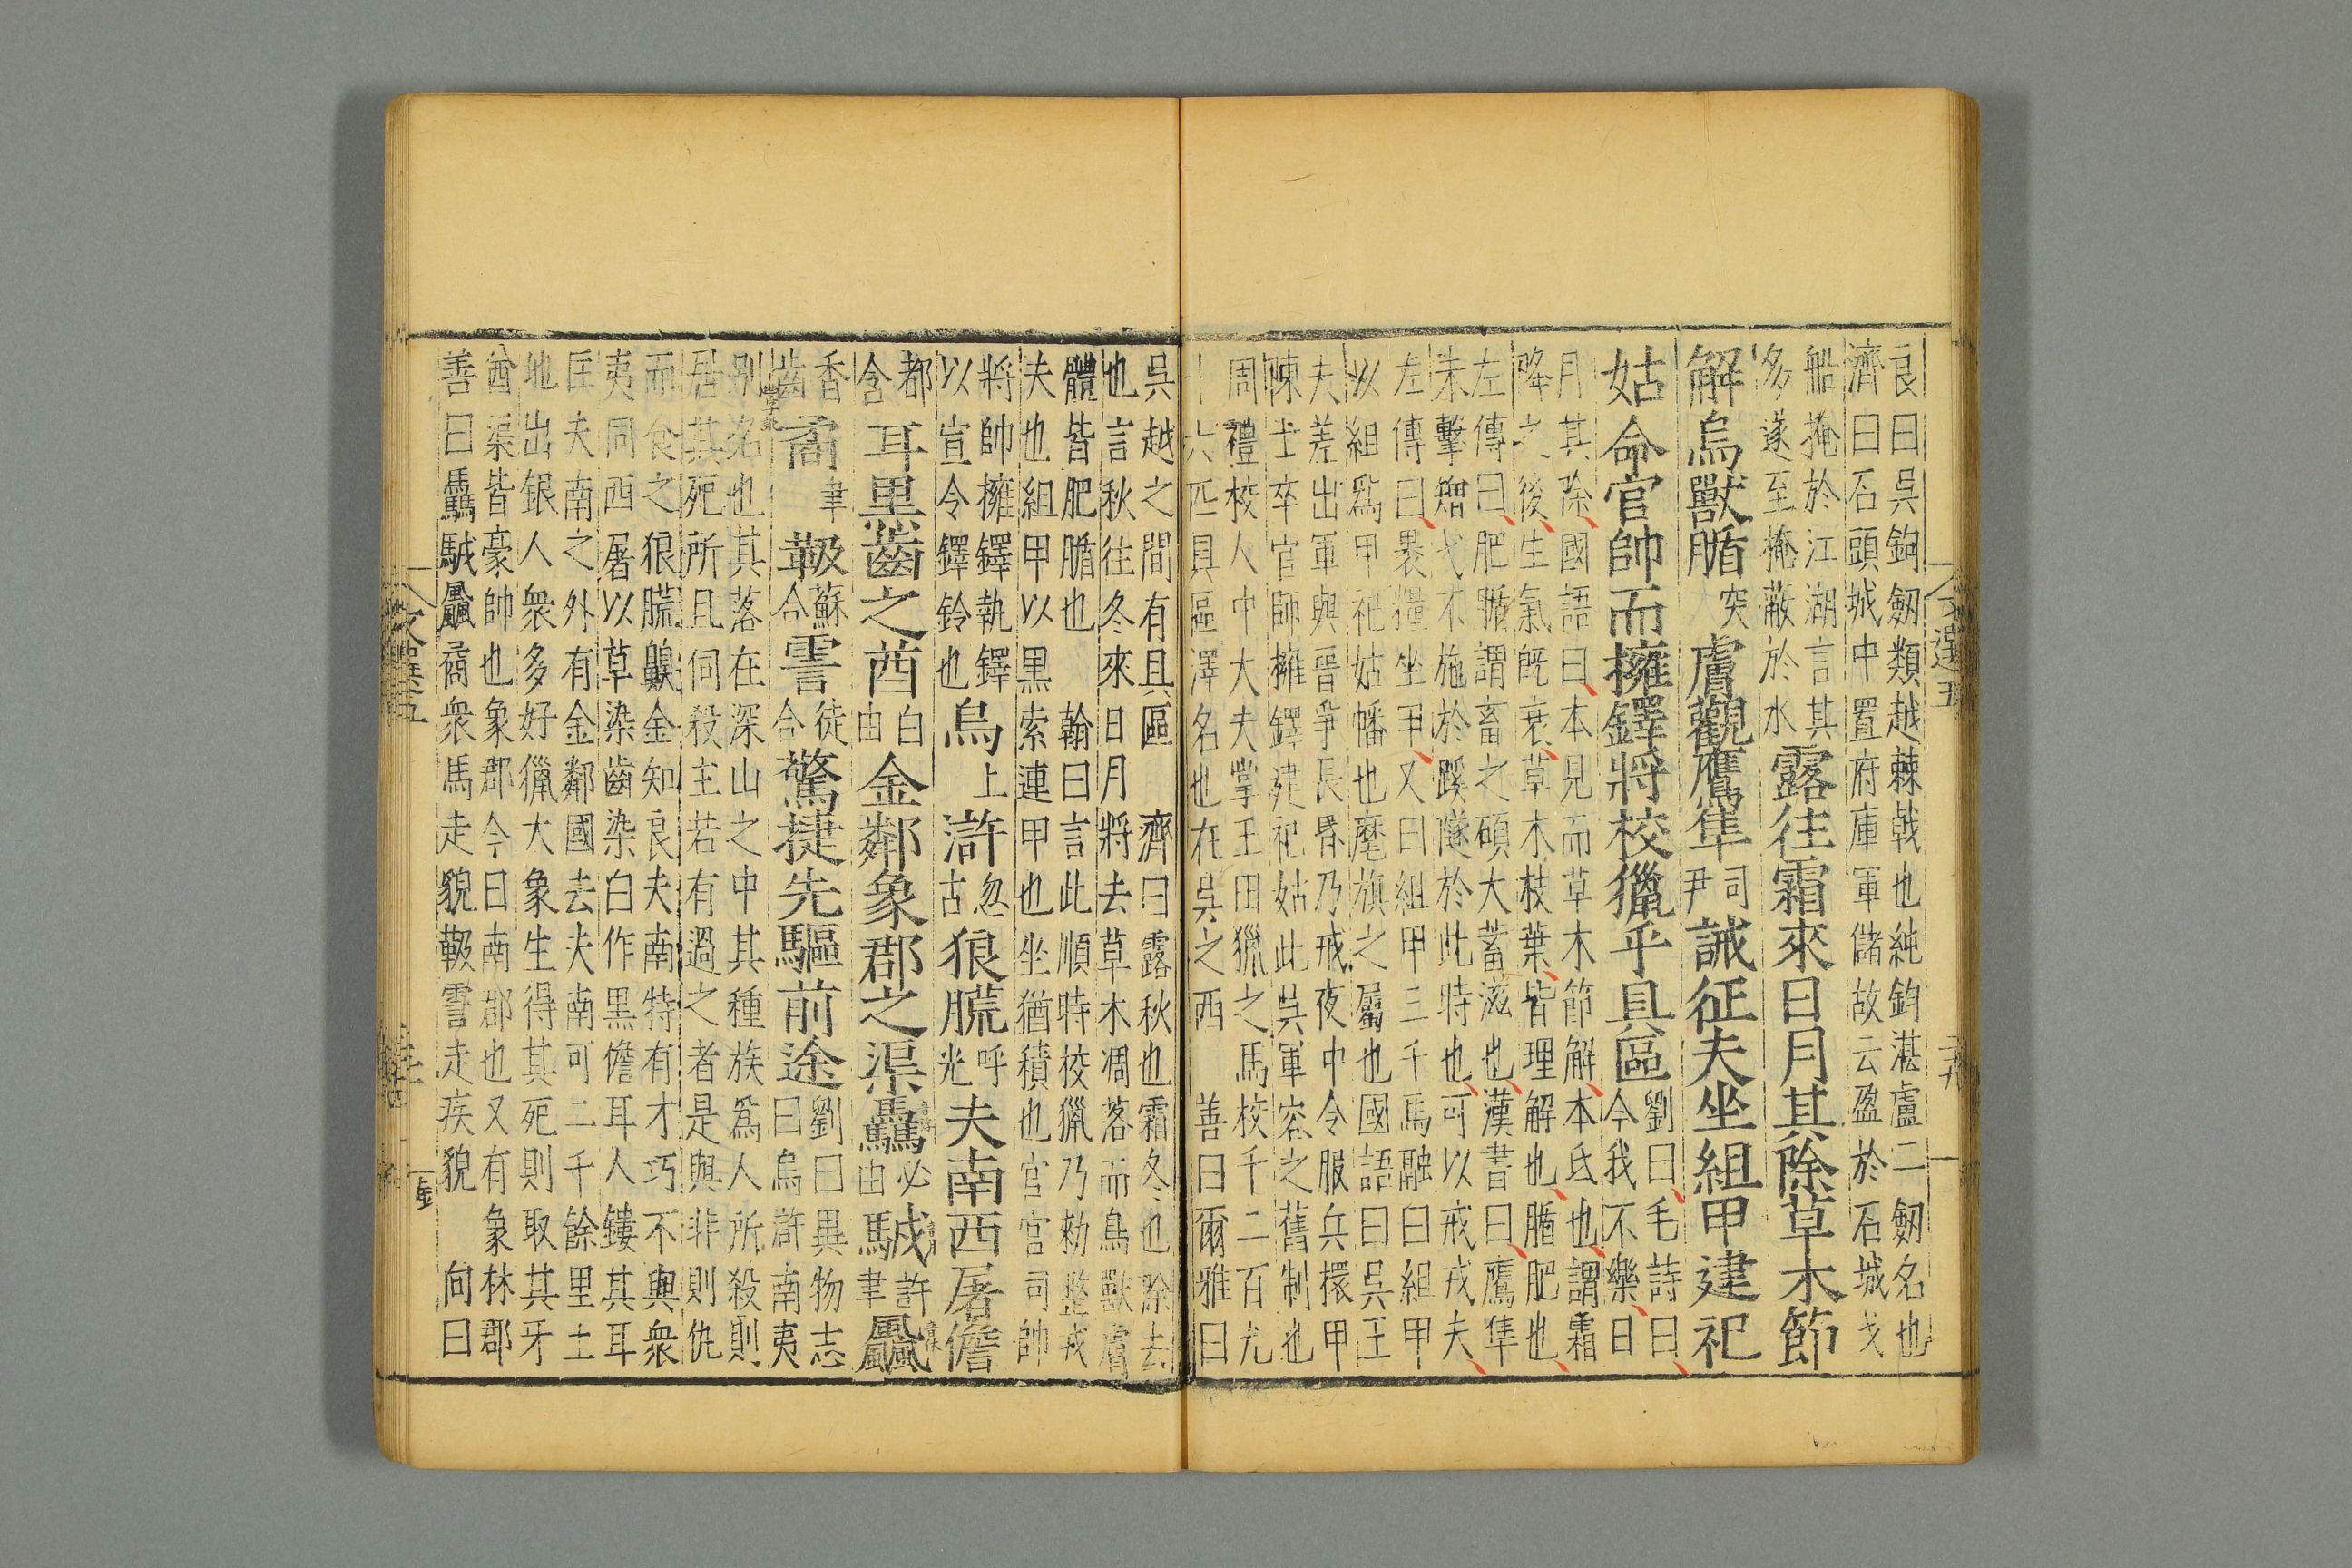 良曰吳鉤劒類越棘戟也純鈞湛盧二劒名也
濟曰石頭城中置府庫軍儲故云盈於石城戈
船掩於江湖言其
多遂至掩蔽於水
露往霜來日月其除草木節
解鳥獸腯
突
膚觀鷹隼
司
尹
誡征夫坐組甲建祀
姑命官帥而擁鐸將校獵乎具區
劉曰毛詩曰
今我不樂日
月其除國語曰本見而草木節解本氐也謂霜
降之後生氣既衰草木枝葉皆理解也腯肥也
左傳曰肥腯謂畜之碩大蓄滋也漢書曰鷹隼
未擊矰弋不施於蹊隧於此時也可以戒戎夫
左傳曰裹糧坐甲又曰組甲三千馬融曰組甲
以組為甲祀姑幡也麾旗之屬也國語曰吳王
夫差出軍與晉爭長昬乃戒夜中令服兵擐甲
陳士卒官師擁鐸建祀姑此吳軍容之舊制也
周禮校人中大夫掌王田獵之馬校千二百尤
十六匹具區澤名也在吳之西
善曰爾雅曰
吳越之間有具區
濟曰露秋也霜冬也除去
也言秋往冬來日月將去草木凋落而鳥獸膚
體皆肥腯也
翰曰言此順時校獵乃勑整戎
夫也組甲以黑索連甲也坐猶積也官官司帥
將帥擁鐸執鐸
以宣令鐸鈴也
烏
上
滸
忽
古
狼䑃
呼
光
夫南西屠儋
都
含
耳黑齒之酋
白
由
金鄰象郡之渠驫
必
由
䬂
許
聿
飍
香
幽
矞
聿
䩯
蘇
合
霅
徒
合
驚捷先驅前途
劉曰異物志
曰烏滸南夷
別名也其落在深山之中其種族為人所殺則
居其死所且伺殺主若有過之者是與非則仇
而食之狼䑃䶎金知良夫南特有才巧不與衆
夷同西屠以草染齒染白作黑儋耳人鏤其耳
匡夫南之外有金鄰國去夫南可二千餘里土
地出銀人衆多好獵大象生得其死則取其牙
酋渠皆豪帥也象郡今日南郡也又有象林郡
善曰驫䬂飍矞衆馬走貌䩯霅走疾貌
向曰